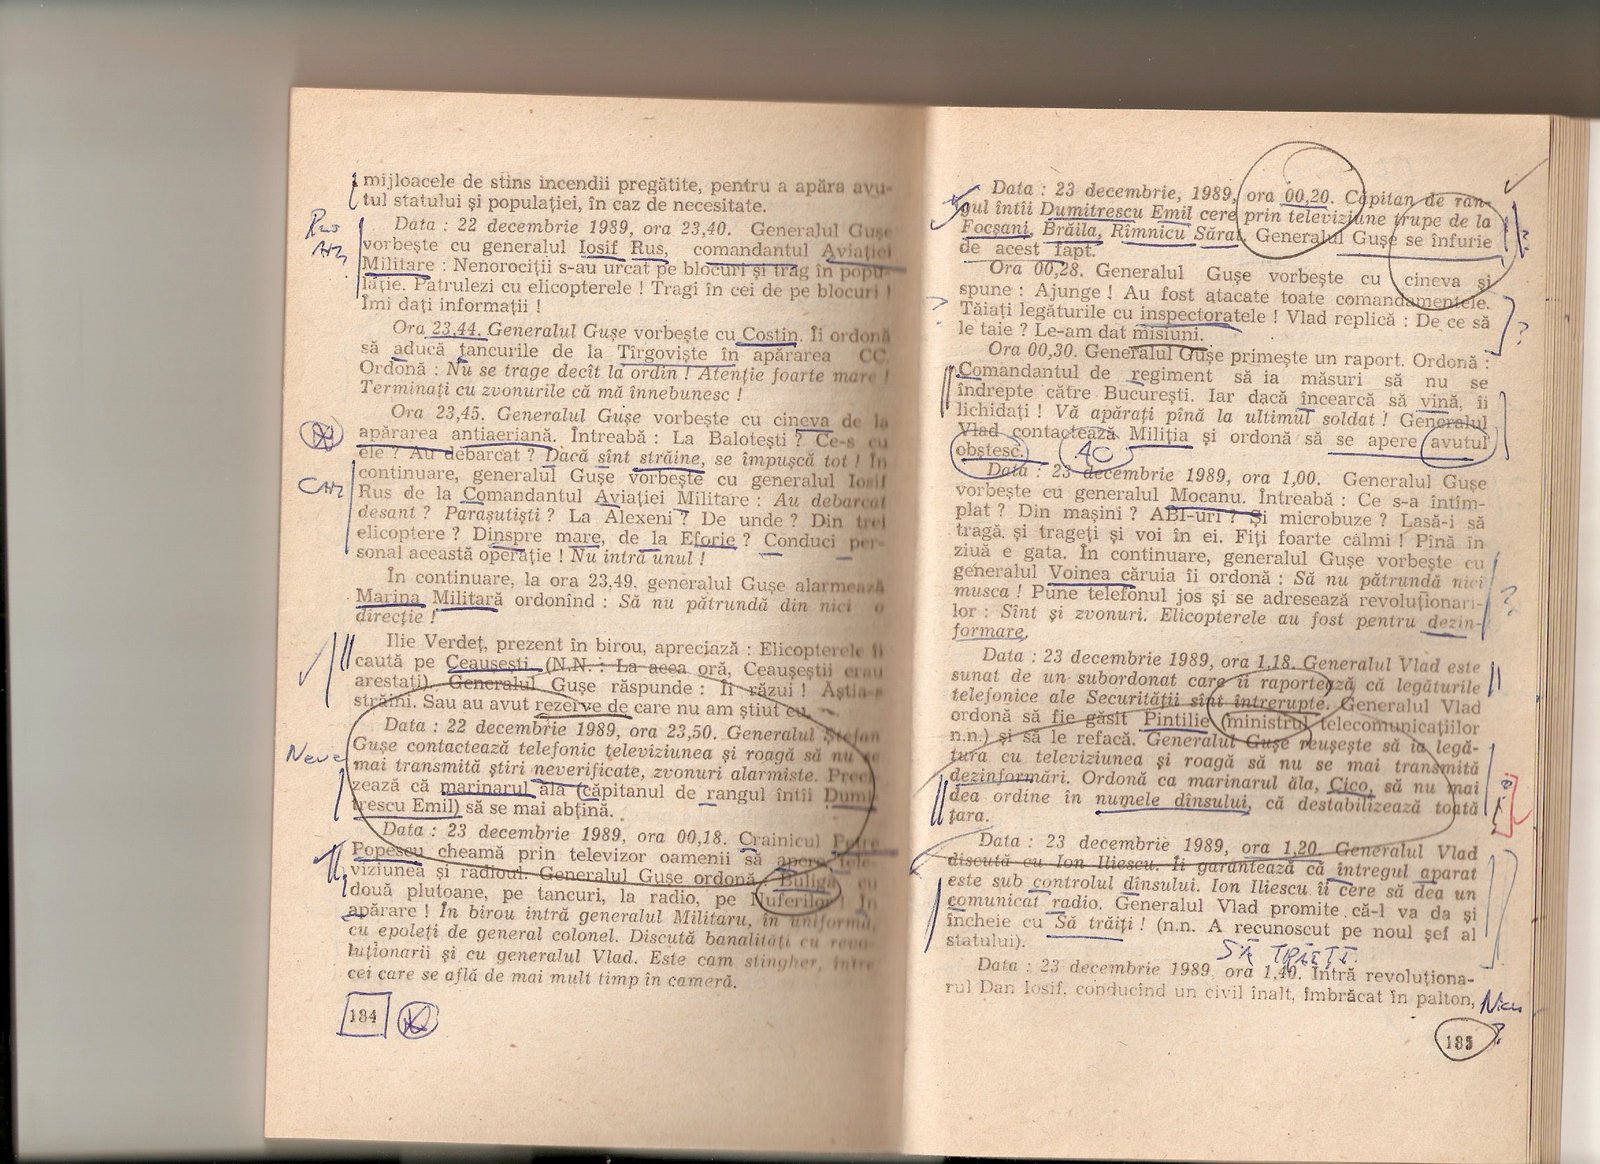 mijloacele de stins incendii pregătite, pentru a apăra avu-
tul statului și populației, în caz de necesitate.
Data : 22 decembrie 1989, ora 23,40. Generalul Gușe
vorbește cu generalul Iosif Rus, comandantul Aviației
Militare : Nenorociții s-au urcat pe blocuri și trag în popu-
lație. Patrulezi cu elicopterele ! Tragi în cei de pe blocuri !
Îmi dați informații !
Ora 23,44. Generalul Gușe vorbește cu Costin. Îi ordonă
să aducă tancurile de la Tîrgoviște în apărarea CC.
Ordonă : Nu se trage decît la ordin ! Atenție foarte mare !
Terminați cu zvonurile că mă înnebunesc !
Ora 23,45. Generalul Gușe vorbește cu cineva de la
apărarea antiaeriană. Întreabă : La Balotești ? Ce-s cu
ele ? Au debarcat ? Dacă sînt străine, se împușcă tot ! În
continuare, generalul Gușe vorbește cu generalul Iosif
Rus de la Comandantul Aviației Militare : Au debarcat
desant ? Parașutiști ? La Alexeni ? De unde ? Din trei
elicoptere ? Dinspre mare, de la Eforie ? Conduci per-
sonal această operație ! Nu intră unul !
În continuare, la ora 23,49. generalul Gușe alarmează
Marina Militară ordonînd : Să nu pătrundă din nici o
direcție !
Ilie Verdeț, prezent în birou, apreciază : Elicopterele îi
caută pe Ceaușești (N.N. : La acea oră, Ceaușeștii erau
arestați). Generalul Gușe răspunde : Îi răzui ! Ăștia-s
străini. Sau au avut rezerve de care nu am știut eu.
Data : 22 decembrie 1989, ora 23,50. Generalul Ștefan
Gușe contactează telefonic televiziunea și roagă să nu se
mai transmită știri neverificate, zvonuri alarmiste. Preci-
zează că marinarul ăla (căpitanul de rangul întîi Dumi-
trescu Emil) să se mai abțină.
Data : 23 decembrie 1989, ora 00,18. Crainicul Petre
Popescu cheamă prin televizor oamenii să apere tele-
viziunea și radioul. Generalul Gușe ordonă Buliga cu
două plutoane, pe tancuri, la radio, pe Nuferilor ! În
apărare ! În birou intră generalul Militaru, în uniformă,
cu epoleți de general colonel. Discută banalități cu revo-
luționarii și cu generalul Vlad. Este cam stingher, între
cei care se află de mai mult timp în cameră.
184
Data : 23 decembrie, 1989, ora 00,20. Căpitan de ran-
gul întîi Dumitrescu Emil cere prin televiziune trupe de la
Focșani, Brăila, Rîmnicu Sărat. Generalul Gușe se înfurie
de acest fapt.
Ora 00,28. Generalul Gușe vorbește cu cineva și
spune : Ajunge ! Au fost atacate toate comandamentele.
Tăiați legăturile cu inspectoratele ! Vlad replică : De ce să
le taie ? Le-am dat misiuni.
Ora 00,30. Generalul Gușe primește un raport. Ordonă :
Comandantul de regiment să ia măsuri să nu se
îndrepte către București. Iar dacă încearcă să vină, îi
lichidați ! Vă apărați pînă la ultimul soldat ! Generalul
Vlad contactează Miliția și ordonă să se apere avutul
obștesc. AC
Data : 23 decembrie 1989, ora 1,00. Generalul Gușe
vorbește cu generalul Mocanu. Întreabă : Ce s-a întîm-
plat ? Din mașini ? ABI-uri ? Și microbuze ? Lasă-i să
tragă. și trageți și voi în ei. Fiți foarte calmi ! Pînă în
ziuă e gata. În continuare, generalul Gușe vorbește cu
generalul Voinea căruia îi ordonă : Să nu pătrundă nici
musca ! Pune telefonul jos și se adresează revoluționari-
lor : Sînt și zvonuri. Elicopterele au fost pentru dezin-
formare.
Data : 23 decembrie 1989, ora 1,18. Generalul Vlad este
sunat de un subordonat care îi raportează că legăturile
telefonice ale Securității sînt întrerupte. Generalul Vlad
ordonă să fie găsit Pintilie (ministrul telecomunicațiilor
n.n.) și să le refacă. Generalul Gușe reușește să ia legă-
tura cu televiziunea și roagă să nu se mai transmită
dezinformări. Ordonă ca marinarul ăla, Cico, să nu mai
dea ordine în numele dînsului, că destabilizează toată
țara.
Data : 23 decembrie 1989, ora 1,20. Generalul Vlad
discută cu Ion Iliescu. Îi garantează că întregul aparat
este sub controlul dînsului. Ion Iliescu îi cere să dea un
comunicat radio. Generalul Vlad promite că-l va da și
încheie cu Să trăiți ! (n.n. A recunoscut pe noul șef al
statului).
SĂ TRĂIȚI
Data : 23 decembrie 1989, ora 1,40. Intră revoluționa-
rul Dan Iosif, conducînd un civil înalt, îmbrăcat în palton,
185